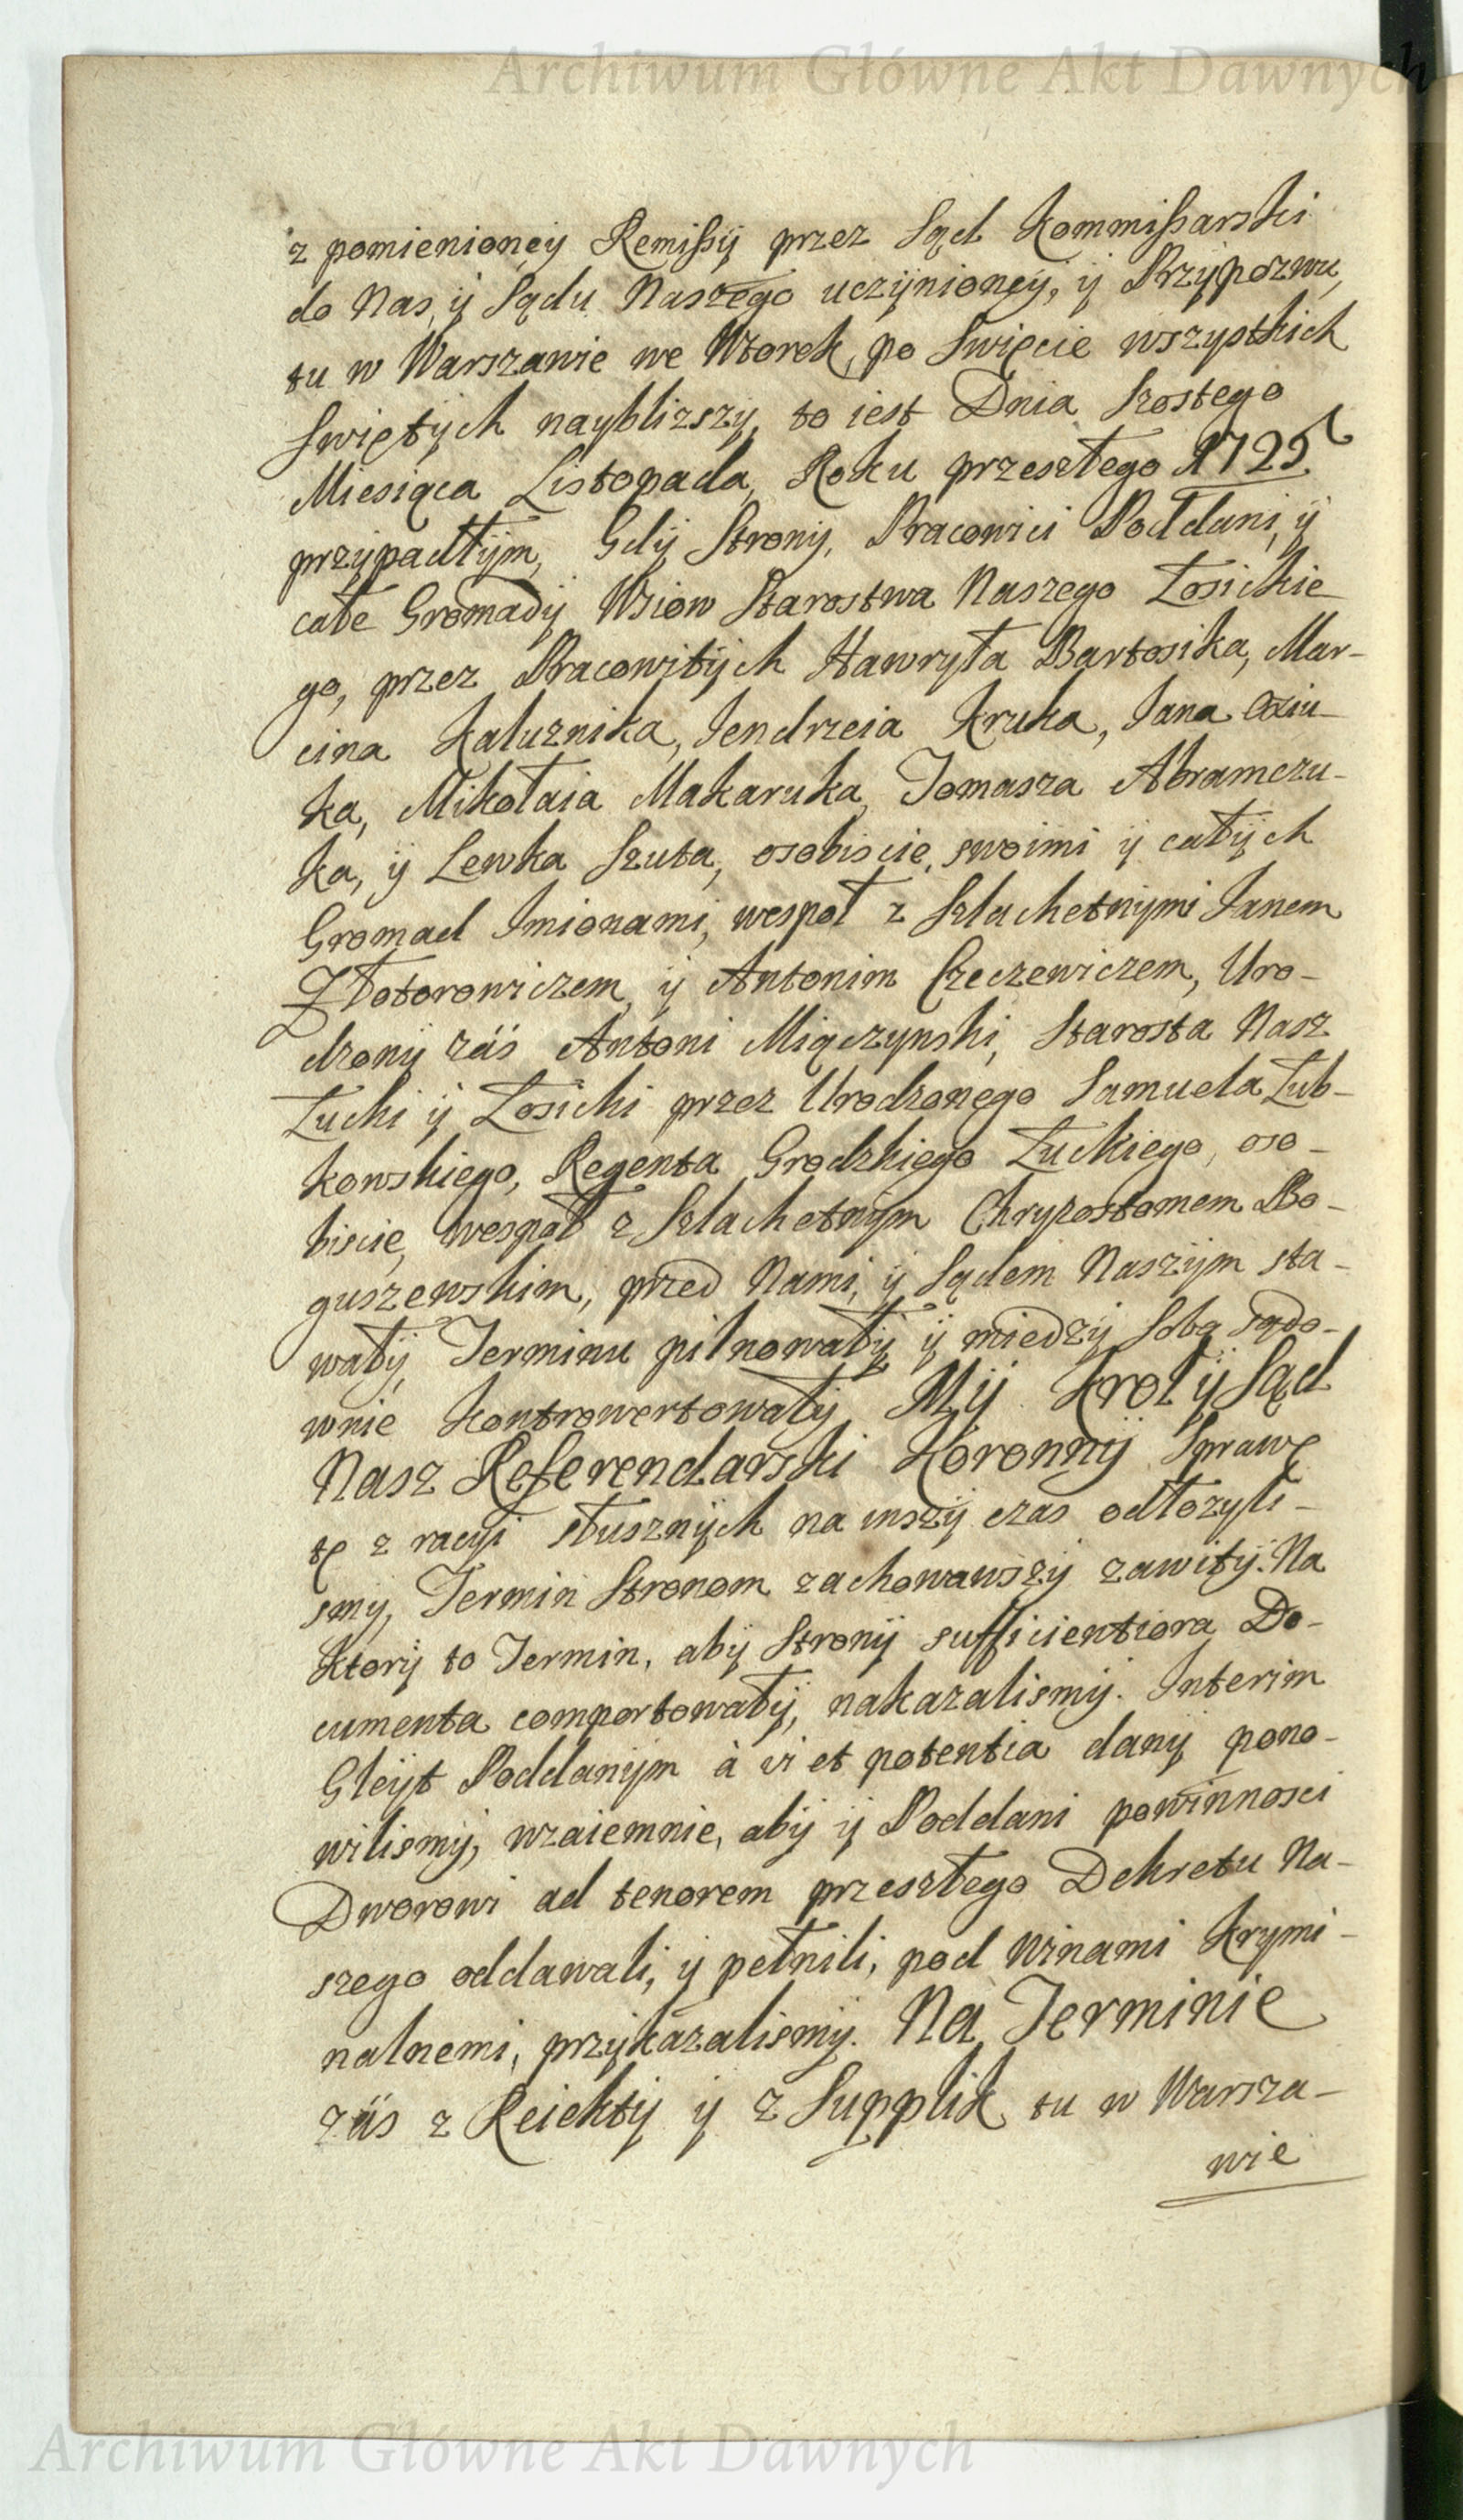 Archiwum Główne Akt Dawnych
z pomienioneÿ Remißÿ przez Sąd Kommißarski
do Nas, ÿ Sądu Naszego uczÿnioneÿ, ÿ Przÿpozwu,
tu w Warszawie we Wtorek, po Swięcie wszystkich
Swiętÿch nayblizszÿ, to iest Dnia Szostego
Miesiąca Listopada, Roku przeszłego 1725
przÿpadłÿm, Gdÿ Stronÿ, Pracowici Poddani, ÿ
całe Gromadÿ Wsiow Starostwa Naszego Łosickie
go, przez Pracowitÿch Hawryła Bartosika, Mar-
cina Kaluznika, Jendrzeia Kruka, Jana
ka, Mikołaia Makaruka, Tomasza Abramczu-
ka, ÿ Lewka Szuta, osobiscie, swoimi ÿ całÿch
Gromad Imionami, wespoł z Szlachetnymi Janem
Złotorowiczem, ÿ Antonim Czeczewiczem, Uro-
dzonÿ zás Antoni Miączynski, Starosta Nasz
Łucki ÿ Łosicki przez Urodzonego Samuela Łub-
kowskiego, Regenta Grodzkiego Łuckiego, oso-
biscie, wespoł z Szlachetnÿm Chryzostomem Bo-
guszewskim, przed Nami, ÿ Sądem Naszÿm sta-
wałÿ, Terminu pilnowałÿ ÿ miedzÿ Sobą Sądo-
wnie kontrowertowałÿ. MŸ Krol ÿ Sąd
Nasz Referendarski Koronnÿ Sprawę
tę z racyi słusznÿch na inszÿ czas odłozyli-
smy, Termin Stronom zachowawszÿ zawitÿ. Na
Ktorÿ to Termin, abÿ Stronÿ sufficientiora Do-
cumenta comportowałÿ, nakazalismÿ. Interim
Gleÿt Poddanÿm à vi et potentia danÿ pono-
wilismÿ, wzaiemnie, abÿ ÿ Poddani powinnosci
Dworowi ad tenorem przeszłego Dekretu Na-
szego oddawali, ÿ pełnili, pod Winami Krymi-
nalnemi, przÿkazalismÿ. Na Terminie
zás z Reiektÿ ÿ z Supplik tu w Warsza-
wie
Archiwum Główne Akt Dawnych